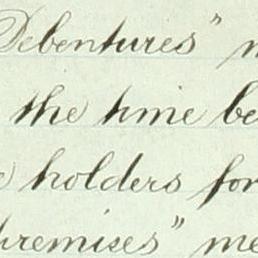 Debentures" m
the time be
e holders for
premises" me